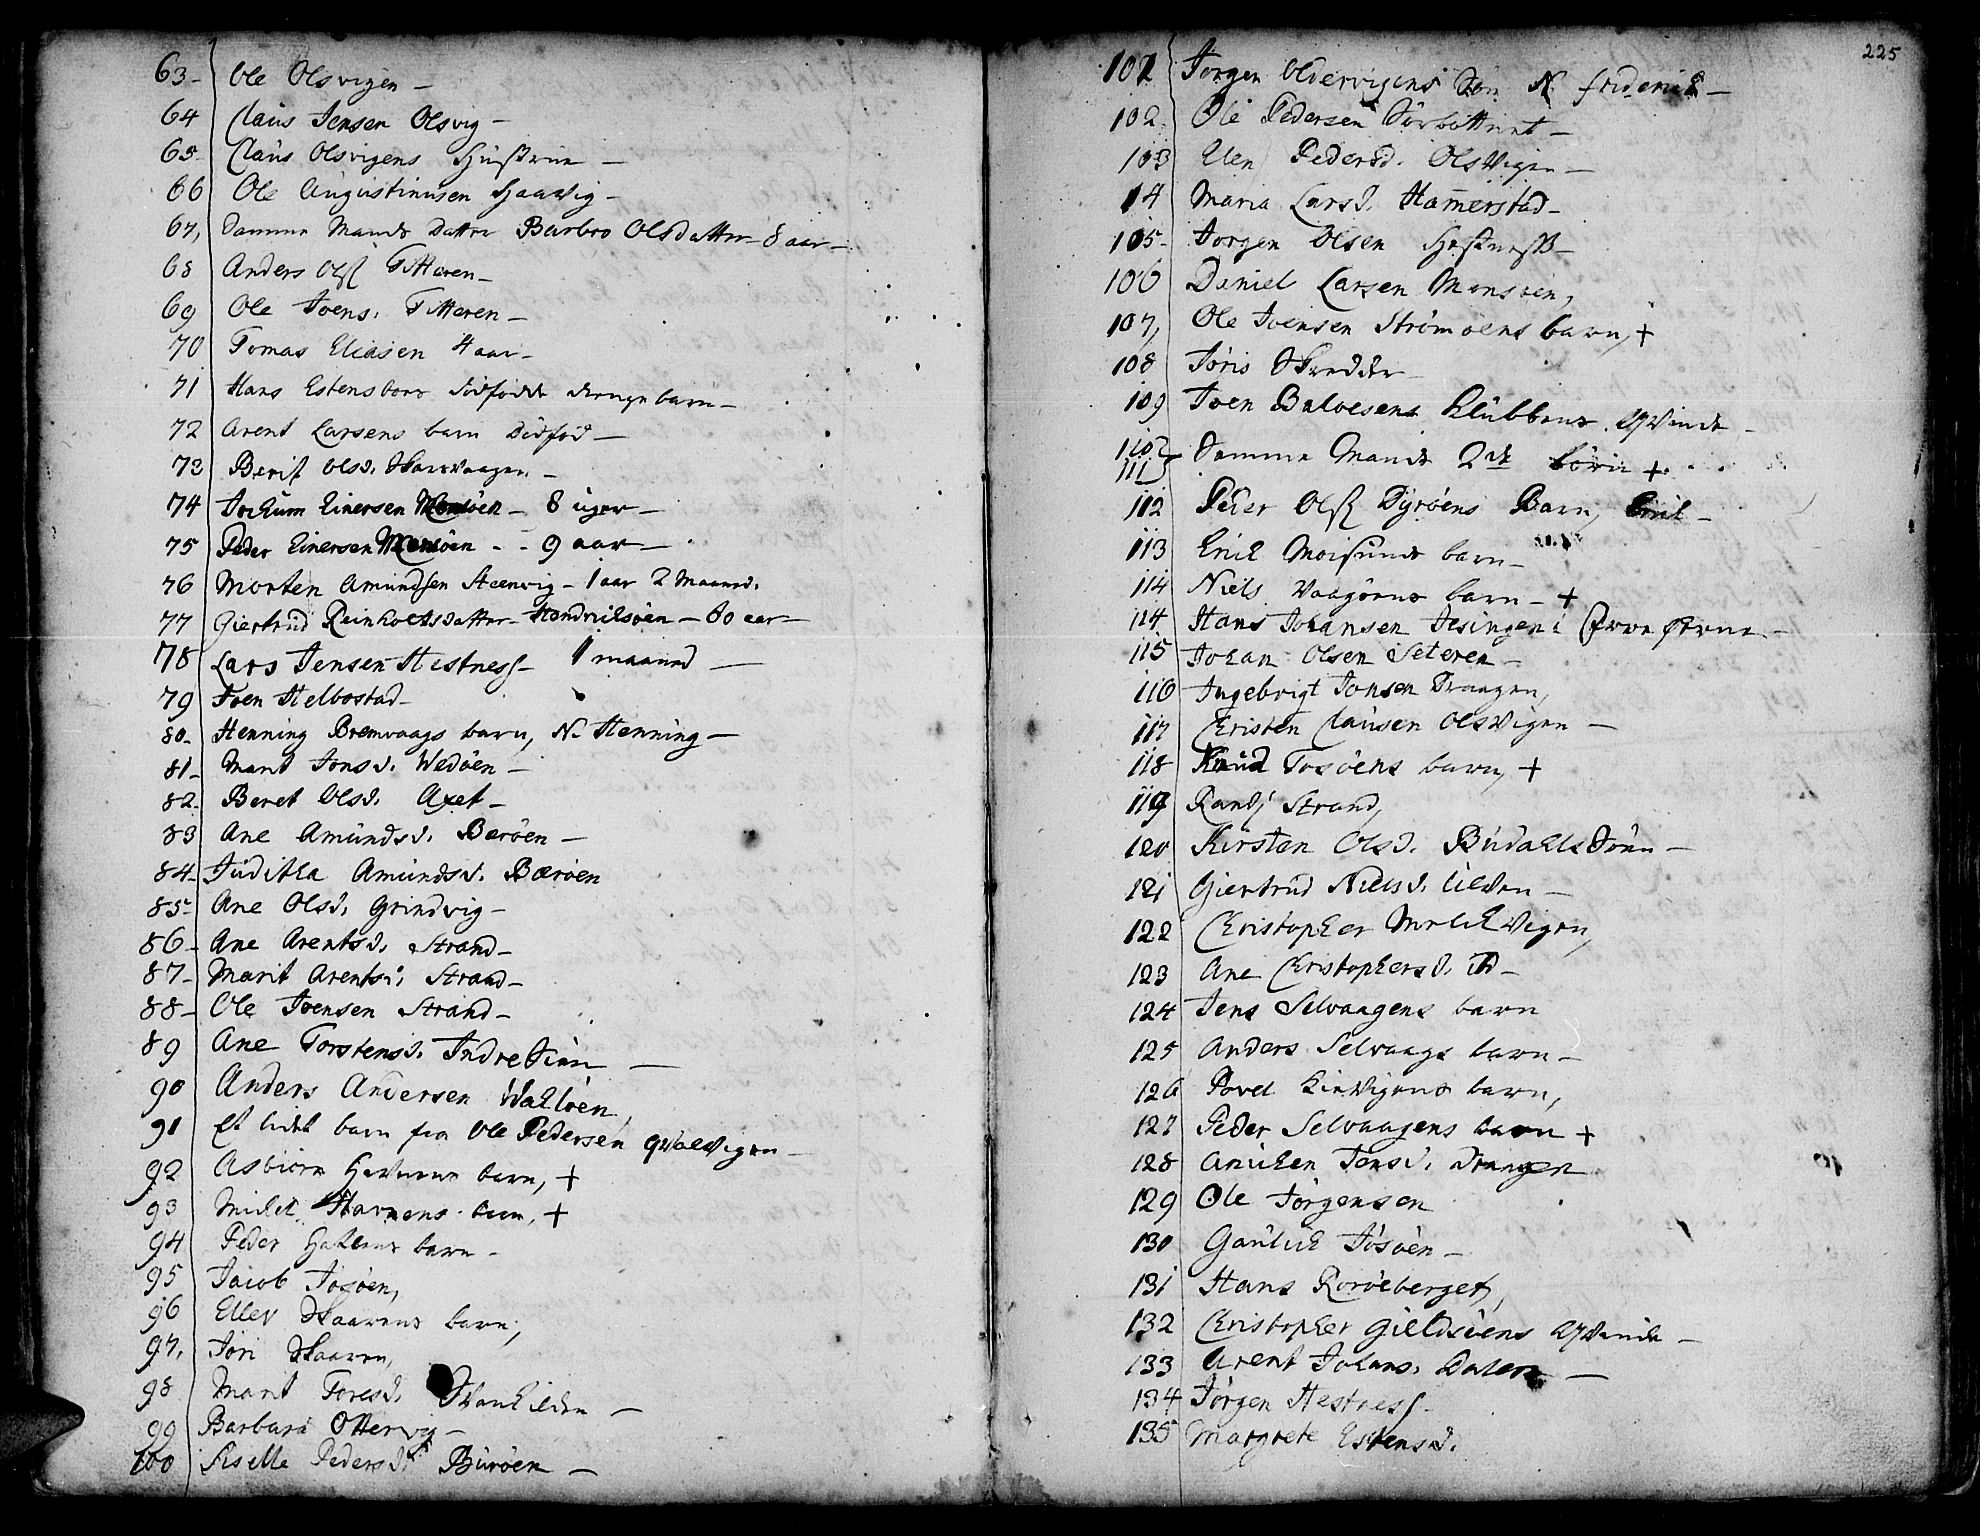 63- Ole Olsvigen -
64 Claus Jensen Olsvig -
65- Claus Olsvigens Hustrue -
66 Ole Augustinusen Haavig -
67, Samme Mands Datter Barbro Olsdatter - 8 aar -
68 Anders Ols Titteren -
69 Ole Joens. Titteren -
70 Tomas Eliasen 4 aar -
71 Hans Estensboes dødfødde drenge barn -
72 Arent Larsens barn dødfød -
73 Berit Olsd. Skarvaagen -
74 Jochum Einersen Monsöen - 8 uger -
75 Peder Einersen Monsöen - - 9 aar -
76 Morten Amundsen Steenvig - 1 aar 2 Maaned.
77 Giertrud Reinholtsdatter - Hendrichsöen - 60 aar -
78 Lars Jensen Hestness - 1 maaned -
79 Joen Helbostad -
80- Henning Bremvaags barn, N. Henning -
81- Marit Jonsd. Wedöen -
82- Beret Olsd. Axet -
83 Ane Amundsd. Beröen -
84- Juditha Amundsd. Beröen
85- Ane Olsd. Grindvig -
86- Ane Arentsd. Strand -
87- Marit Arentsd. Strand -
88- Ole Joensen Strand -
89 Ane Torstensd. Indre -
90 Anders Andersen Wahlöen,
91 Et lidet barn fra Ole Pedersen Qvalvigen -
92 Asbiörn barn, +
93 Michel Havnens barn, +
94 Peder barn -
95 Jacob Josöen,
96 Ellev Skaarens barn,
97, Jöri Skaaren,
98 Marit Toresd. -
99 Barbara Ottervig -
100 Siselle Pedersd. Buröen -
225
101 Jörgen Oldervigens Sön N. Friderich -
102- Ole Pedersen -
103 Elen Pedersd. Olsvigen -
14 Maria Larsd. Hamerstad -
105- Jörgen Olsen Hestness -
106 Daniel Larsen Monsöen,
107, Ole Joensen Strömöens barn, +
108 Jöris -
109 Joen Balvesens Klubbens Qvinde -
110
111 Samme Mands 2de börn +
112 Peder Ols Dyröens Barn, -
113 Erich Moisunds barn -
114 Niels Vaagöens barn - +
114 Hans Johansen Jesingen i -
115 Johan Olsen Seteren -
116 Ingebrigt Jonsen Draagen,
117 Christen Clausen Olsvigen -
118 Knud Tosöens barn, +
119 Randj Strand,
120 Kirsten Olsd. -
121 Giertrud Nielsd. -
122 Christopher
123 Ane Christophersd. -
124 Jens Selvaagens barn
125 Anders Selvaags barn -
126 Povel barn,
127 Peder Selvaagens barn +
128 Anichen Jonsd. Draagen
129 Ole Jörgensen
130 Gaulich Josöen -
131 Hans Roröeberget,
132 Christopher Gieldsöens Qvinde -
133 Arent Johans. Dalen -
134 Jörgen Hestness -
135 Margrete Estensd.